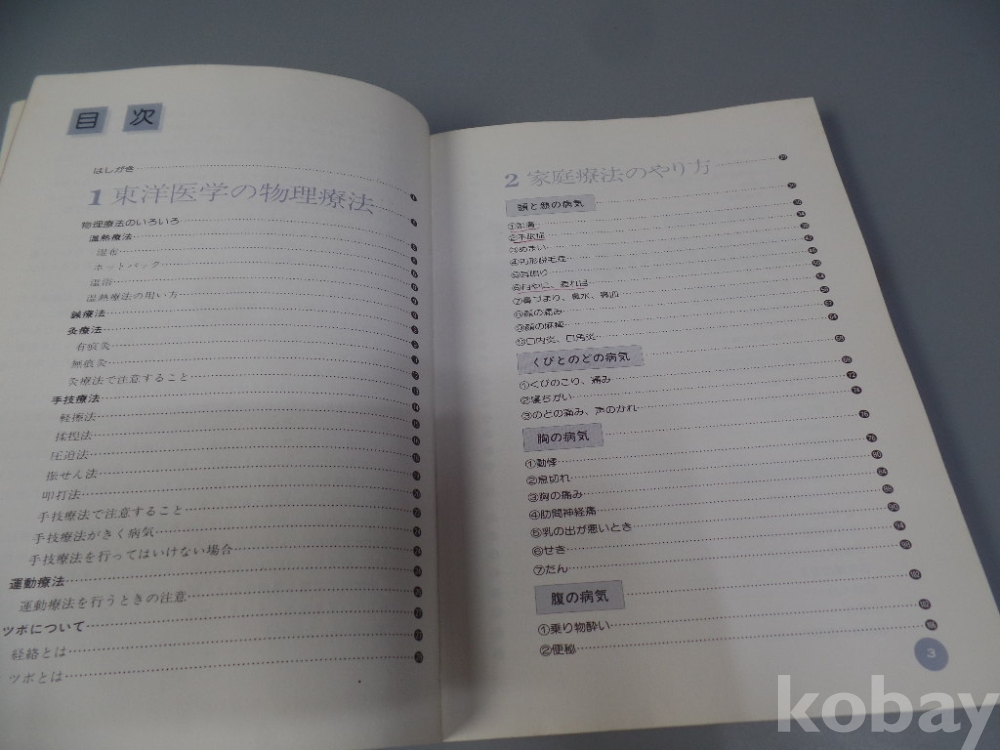 目次
はしがき
1 東洋医学の物理療法
物理療法のいろいろ
温熱療法
湿布
ホットパック
温浴
温熱療法の用い方
鍼療法
灸療法
有痕灸
無痕灸
灸療法で注意すること
手技療法
軽擦法
揉捏法
圧迫法
振せん法
叩打法
手技療法で注意すること
手技療法がきく病気
手技療法を行ってはいけない場合
運動療法
運動療法を行うときの注意
ツボについて
経絡とは
ツボとは
2 家庭療法のやり方
頭と顔の病気
①頭痛
②不眠症
③めまい
④円形脱毛症
⑤耳鳴り
⑥かすみ目、疲れ目
⑦鼻づまり、鼻水、鼻血
⑧顔の痛み
⑨顔の麻痺
⑩口内炎、口角炎
くびとのどの病気
①くびのこり、痛み
②寝ちがい
③のどの痛み、声のかれ
胸の病気
①動悸
②息切れ
③胸の痛み
④肋間神経痛
⑤乳の出が悪いとき
⑥せき
⑦たん
腹の病気
①乗り物酔い
②便秘
3
kobay